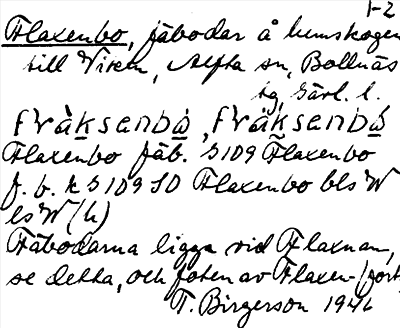 1-2
Flaxenbo, fäbodar å hemskogen
till Viken, Alfta sn, Bollnäs
tg, Gävl. l.
fràksenbò, frâksenbó
Flaxenbo fäb. S109 Flaxenbo
f. b. k S109 SO Flaxenbo bls W
ls W (h)
Fäbodarna ligga vid Flaxnan,
se detta, och foten av Flaxen- (forts
T. Birgerson 1946